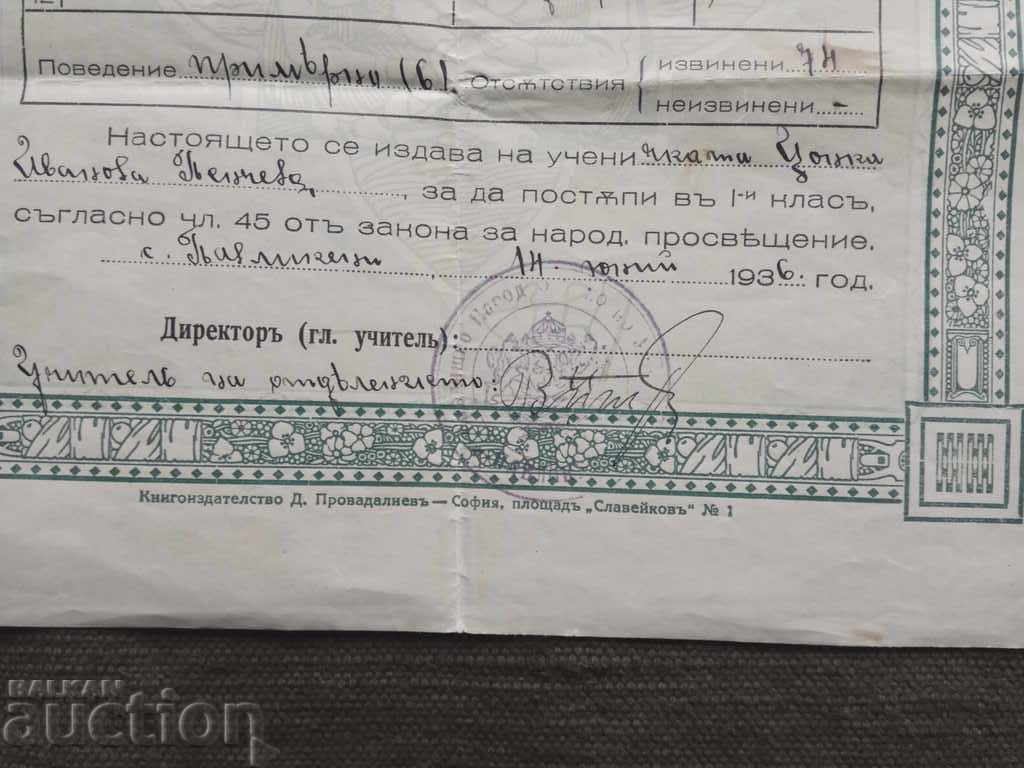 Поведение примѣрно (6). Отсѫтствия { извинени 74
неизвинени -
Настоящето се издава на ученичката Цонка
Иванова Пенчева, за да постѫпи въ I-и класъ,
съгласно чл. 45 отъ закона за народ. просвѣщение.
с. Павликени, 14. юний 1936 год.
Директоръ (гл. учитель):
Учитель на отдѣлението:
Книгоиздателство Д. Провадалиевъ — София, площадъ „Славейковъ" № 1
BALKAN
auction